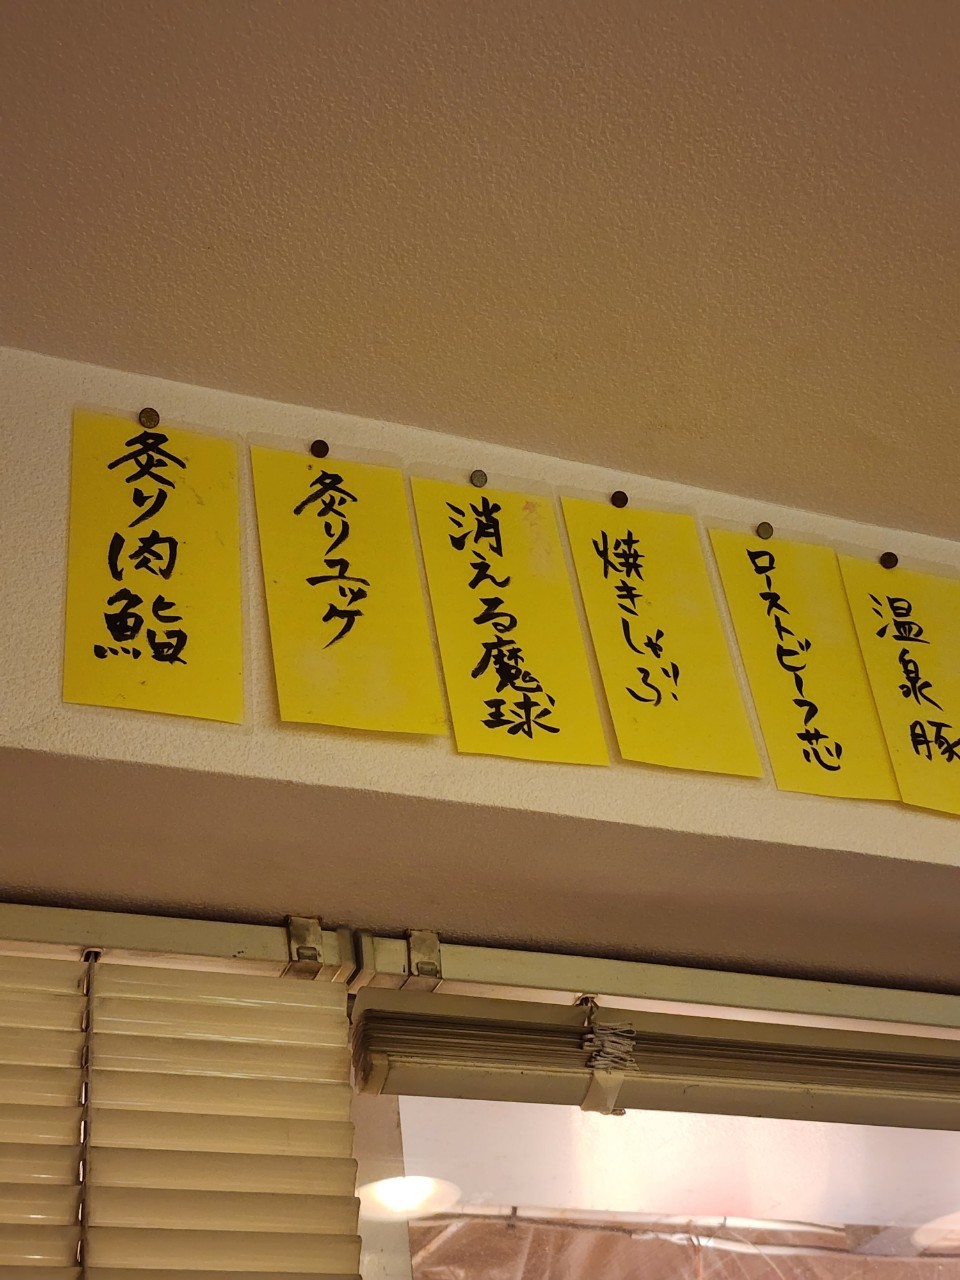 炙り肉鮨
炙りユッケ
消える魔球
焼きしゃぶ
ローストビーフ芯
温泉豚